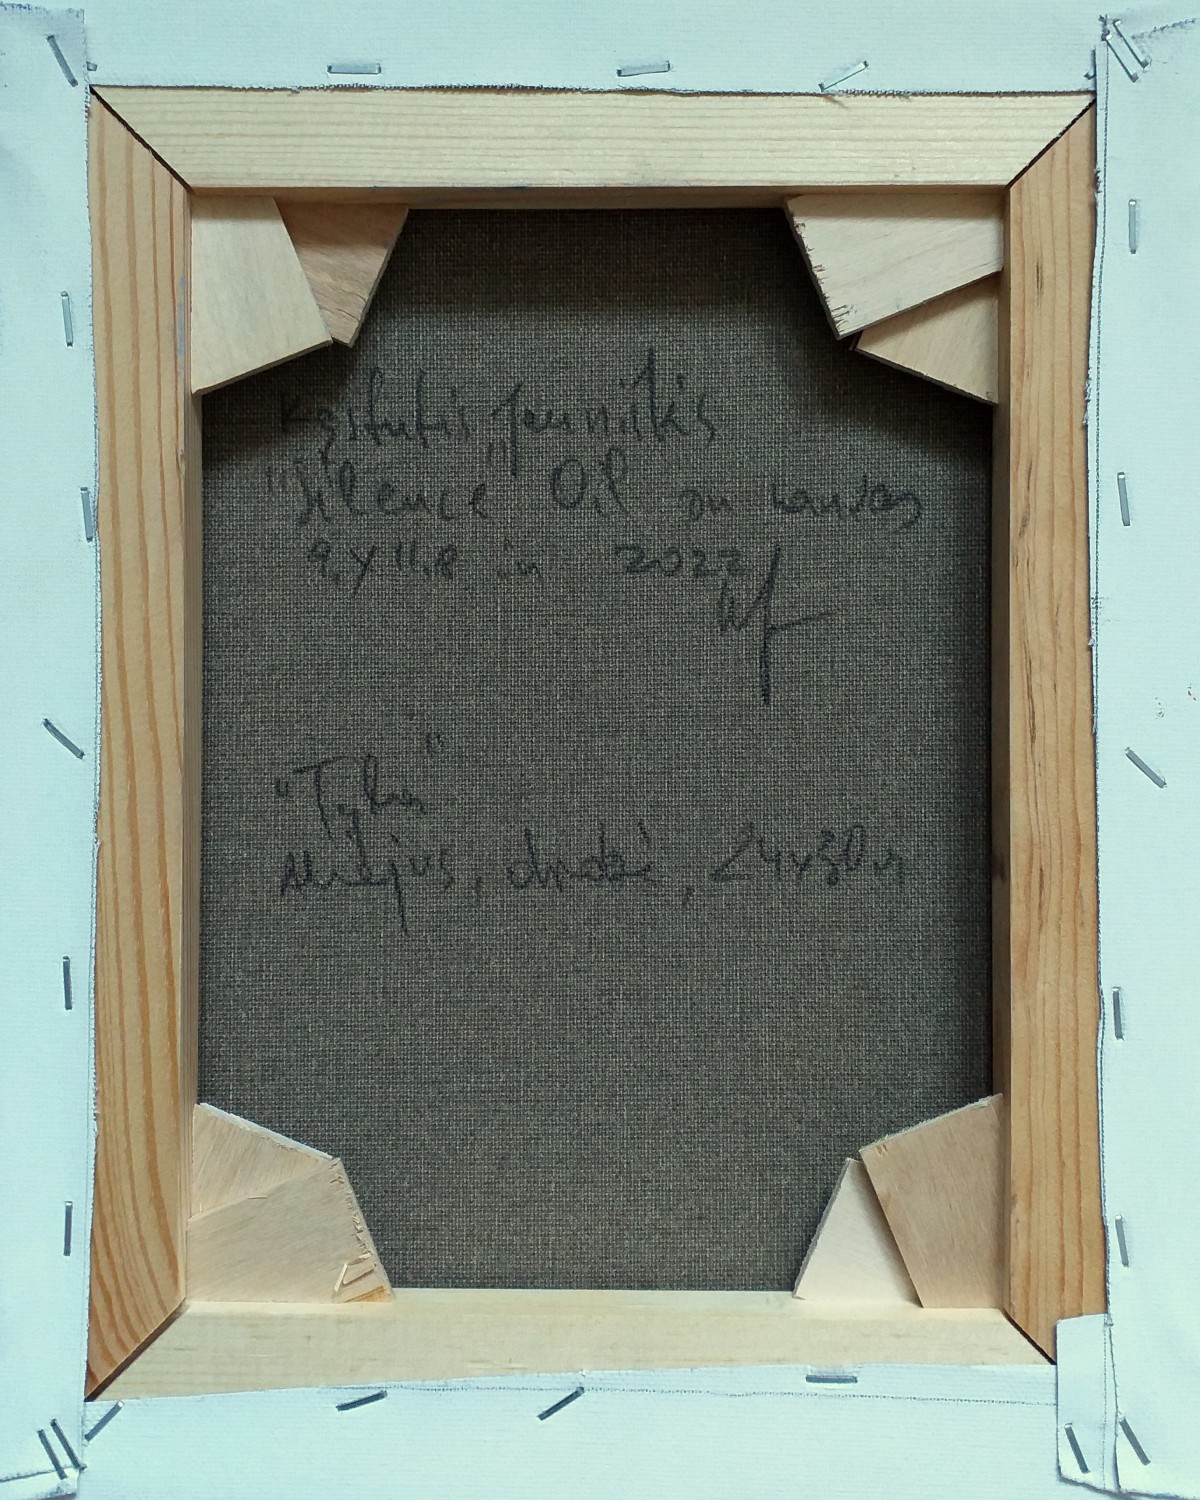 Kęstutis Jauniškis
"Silence" Oil on canvas
9,4 x 11,8 in 2022
"Tyla"
Aliejus, drobė, 24x30cm